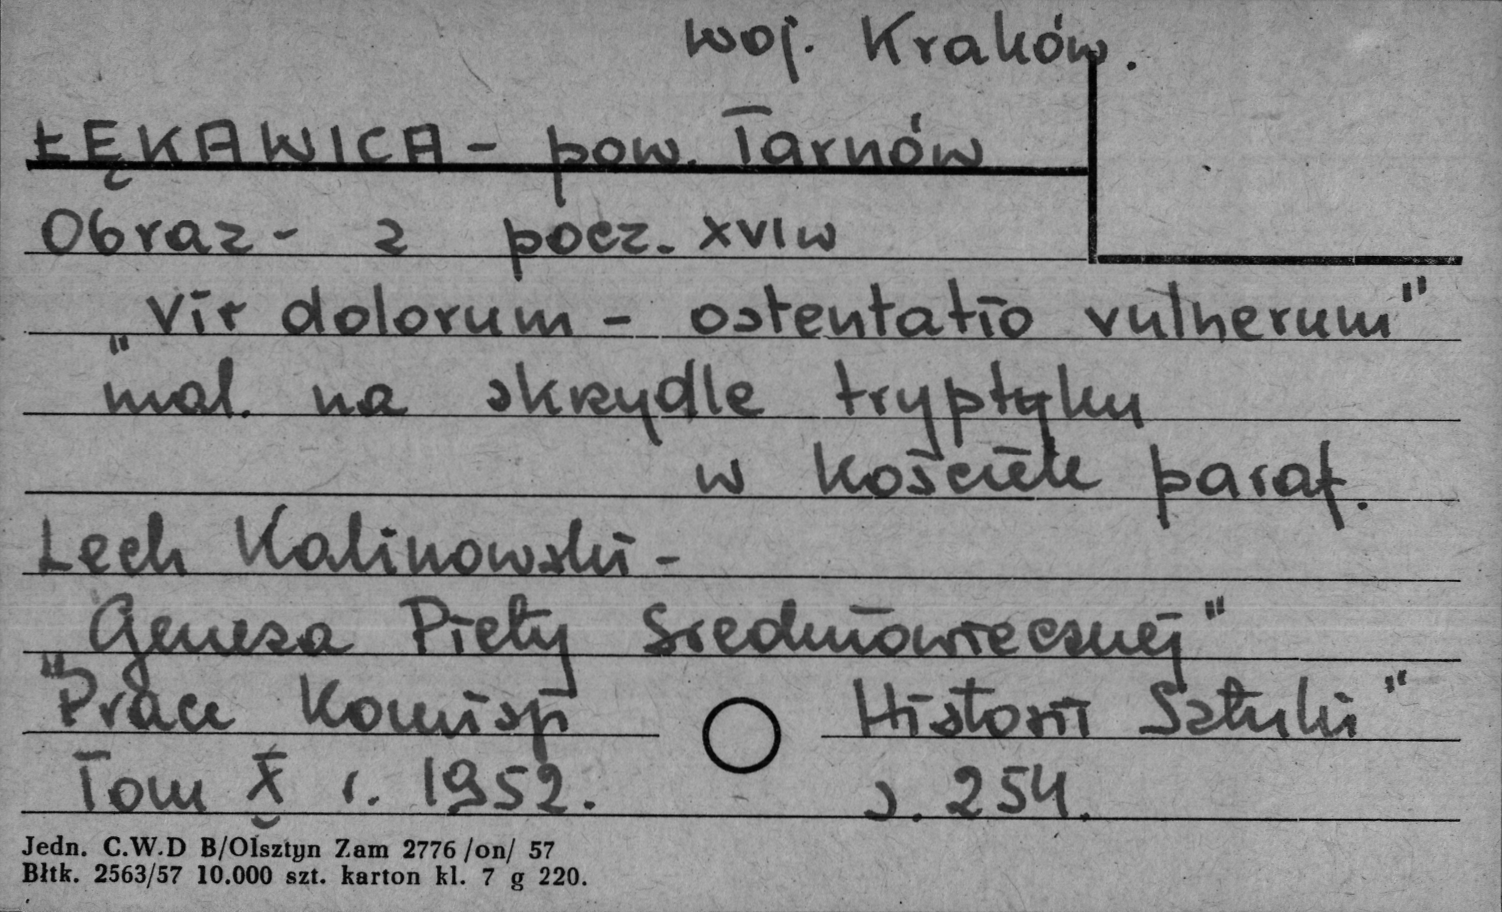 woj. Kraków.
ŁĘKAWICA - pow. Tarnów
Obraz - z pocz. XVI w
"Vir dolorum - ostentatio vulnerum"
mal. na skrzydle tryptyku
w kościele paraf.
Lech Kalinowski -
"Geneza Piety Średniowiecznej"
"Prace Komisji Historii Sztuki"
Tom X r. 1952. s. 254.
Jedn. C.W.D B/Olsztyn Zam 2776 /on/ 57
Błtk. 2563/57 10.000 szt. karton kl. 7 g 220.